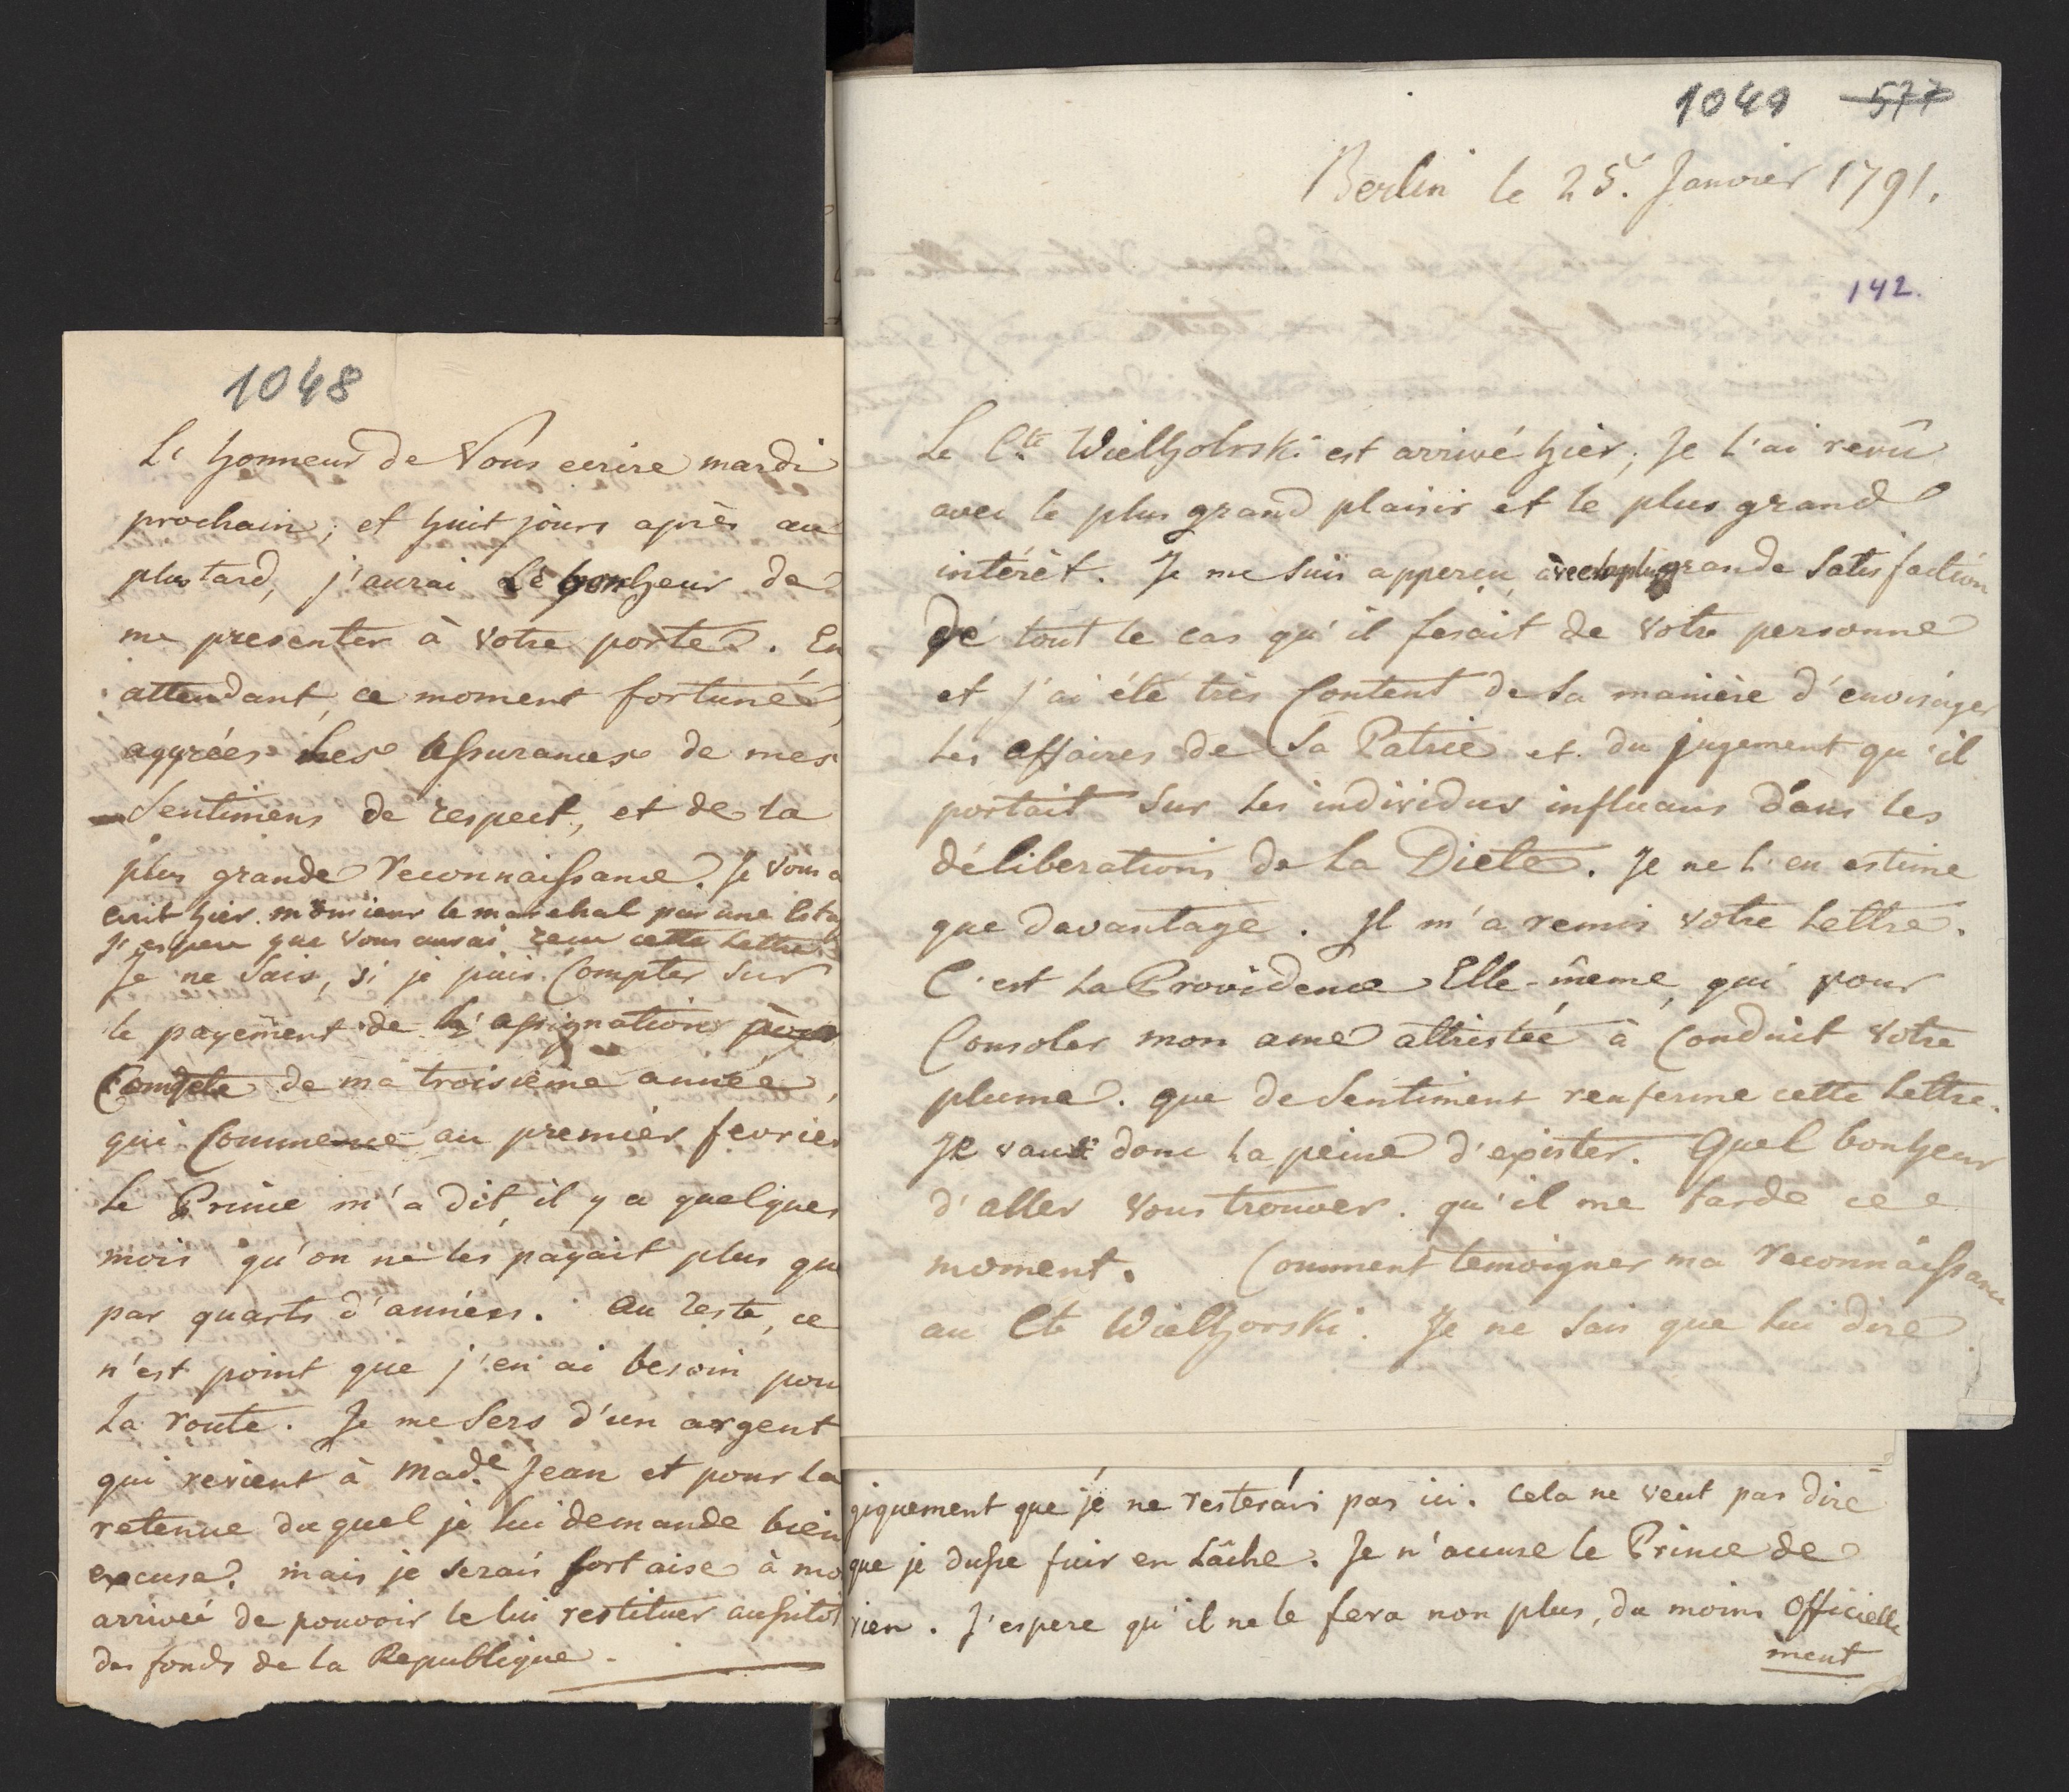 1048
Le honneur de Vous ecrire mardi
prochain; et huit jours après au
plus tard, j'aurai Le bonheur de
me presenter à votre porte. En
attendant ce moment fortuné,
aggréés Les Assurances de mes
Sentimens de respect, et de la
plus grande reconnaissance. Je vous a
ecrit hier. monsieur le marechal par une Esta
J'espere que vous aurai recu cette Lettre
Je ne Sais, si je puis Compter Sur
le payement de l'assignation pour
Compte de ma troisième année,
qui Commence au premier fevrier
Le Prince m'a dit, il y a quelques
mois qu'on ne les payait plus que
par quarts d'années. Au reste, ce
n'est point que j'en ai besoin pou
La route. Je me Sers d'un argent
qui revient à Made Jean et pour la
retenue duquel je lui demande bien
excuse. mais je serais fort aise à mo
arriveé de pouvoir le lui restituer aussitot
des fonds de la Republique.
1049 577
Berlin le 25. Janvier 1791.
142.
Le Cte Wielhorski est arrivé hier; Je l'ai revû
avec le plus grand plaisir et le plus grand
intérèt. Je me suis apperçu, avec la plus grande Satisfaction
de tout le cas qu'il fesait de votre personne
et j'ai été très Content de Sa manière d'envisager
Les affaires de Sa Patrie et du jugement qu'il
portait Sur Les individus influans dans Les
déliberations de La Diete. Je ne l'en estime
que davantage. Il m'a remis votre Lettre.
C'est La Providence Elle-même, qui pour
Consoler mon ame attristée à Conduit votre
plume. que de Sentiment renferme cette Lettre.
Il vaut donc La peine d'exister. Quel bonheur
d'aller vous trouver. qu'il me tarde ce
moment. Comment temoigner ma reconnaissance
au Cte Wielhorski. Je ne Sais que Lui dire
giquement que je ne resterais pas ici. Cela ne veut pas dire
que je dusse fuir en Lâche. Je n'accuse le Prince de
rien. J'espere qu'il ne le fera non plus, du moins Officielle
ment